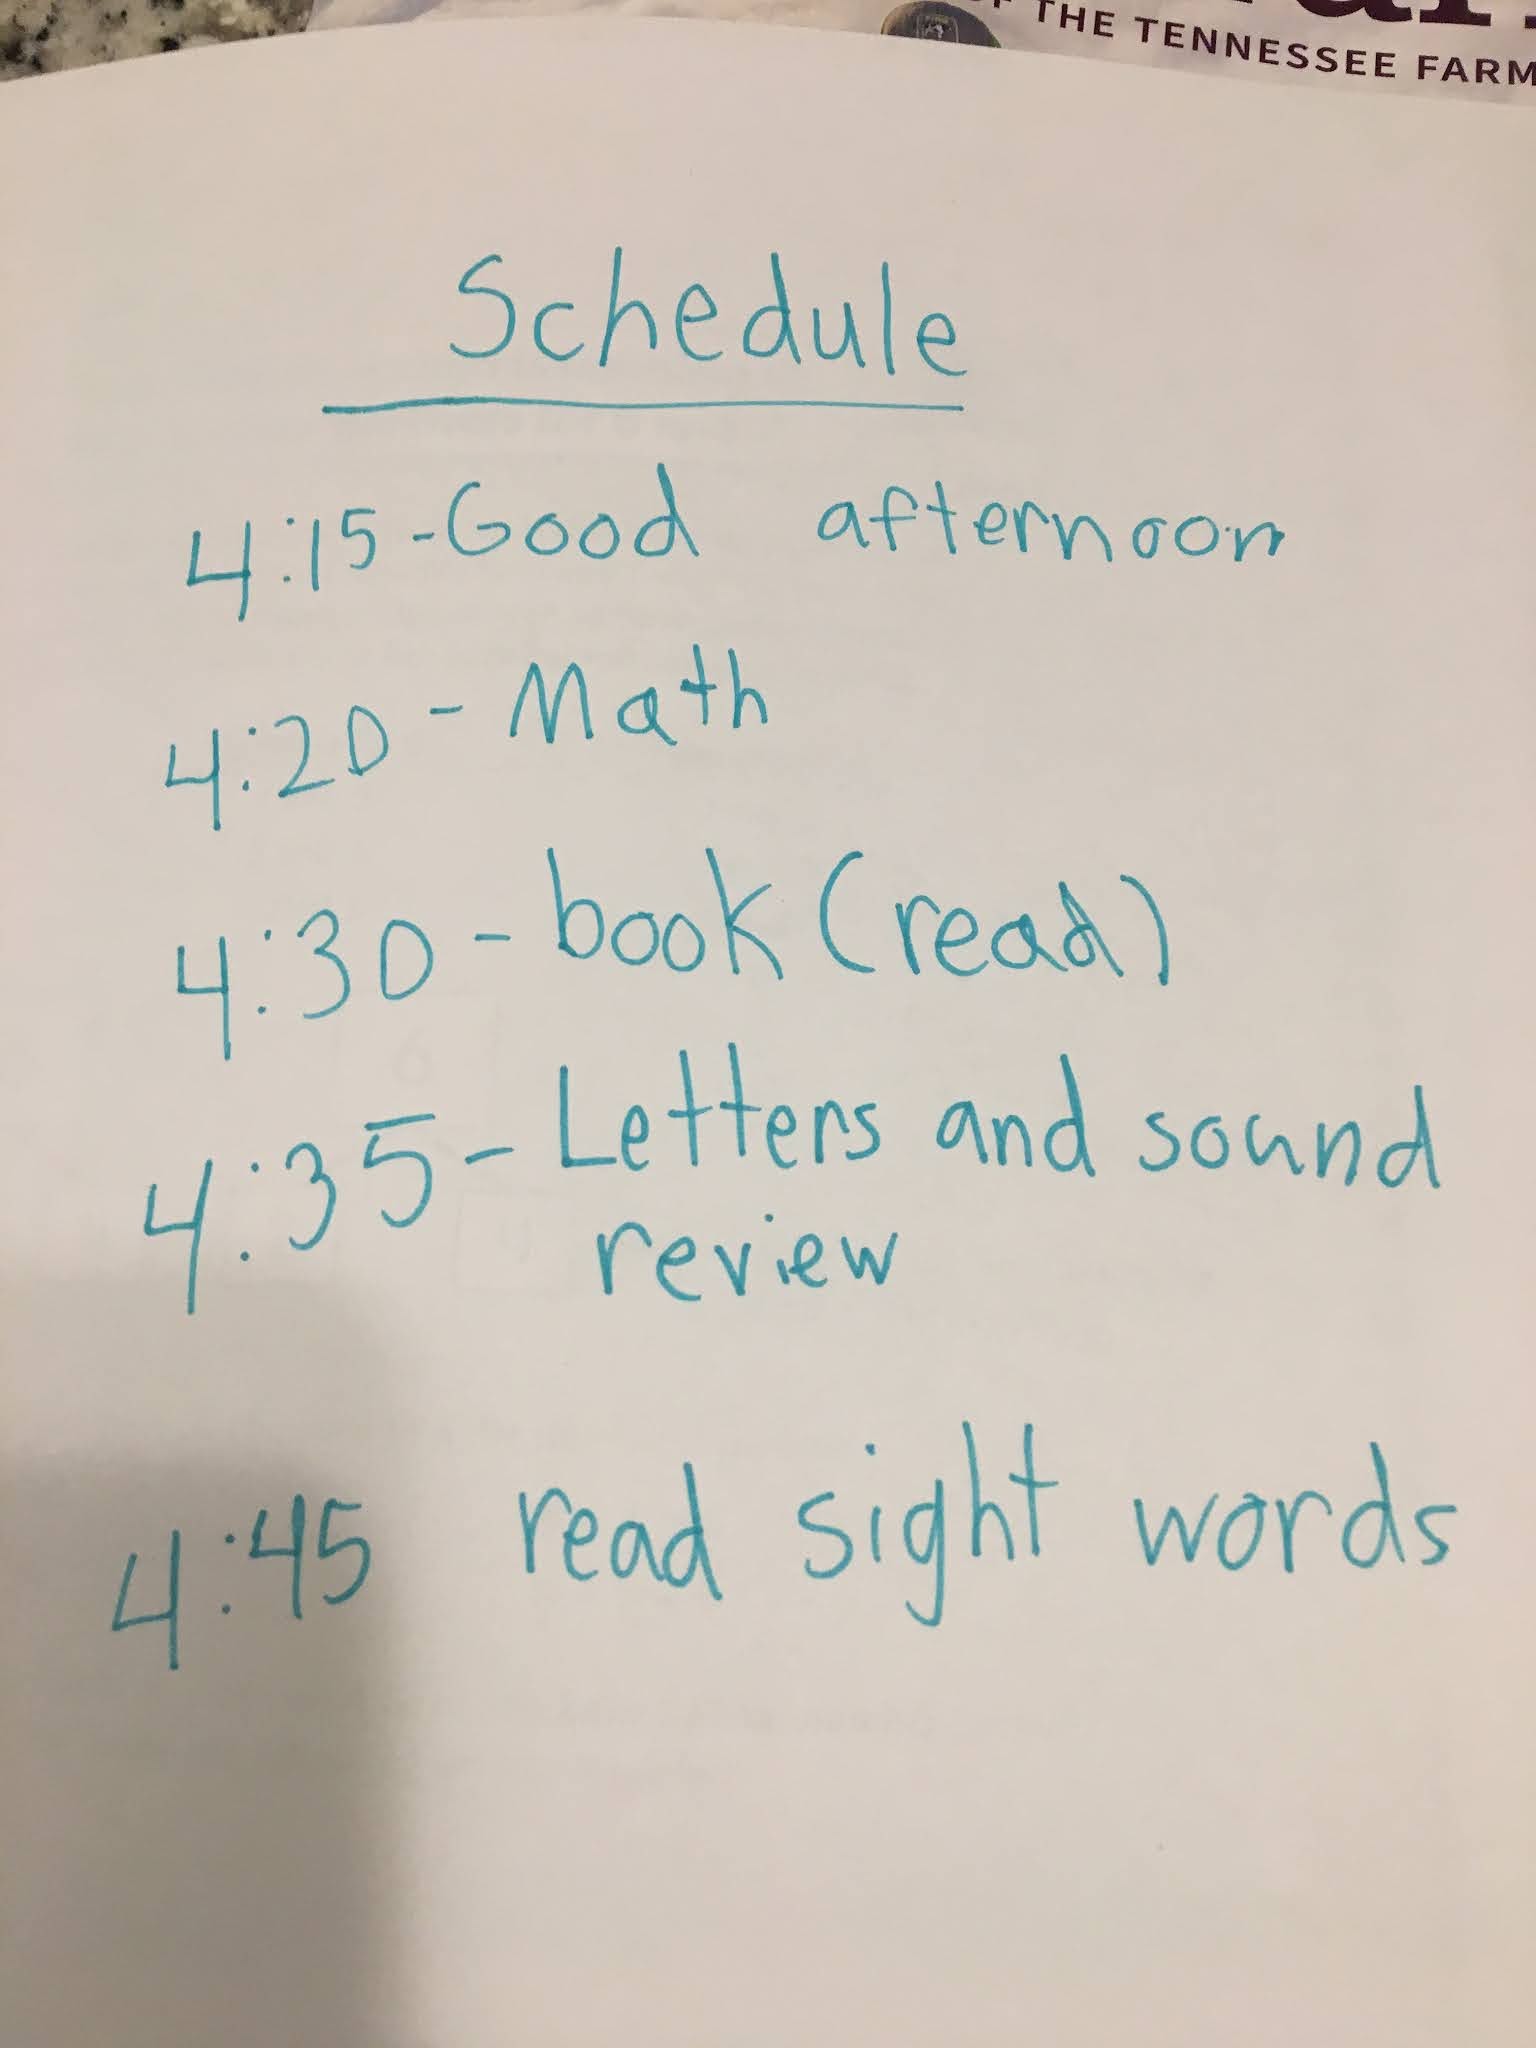 THE TENNESSEE FARM
Schedule
4:15-Good afternoon
4:20 - Math
4:30 - book (read)
4:35 - Letters and sound
review
4:45 read sight words